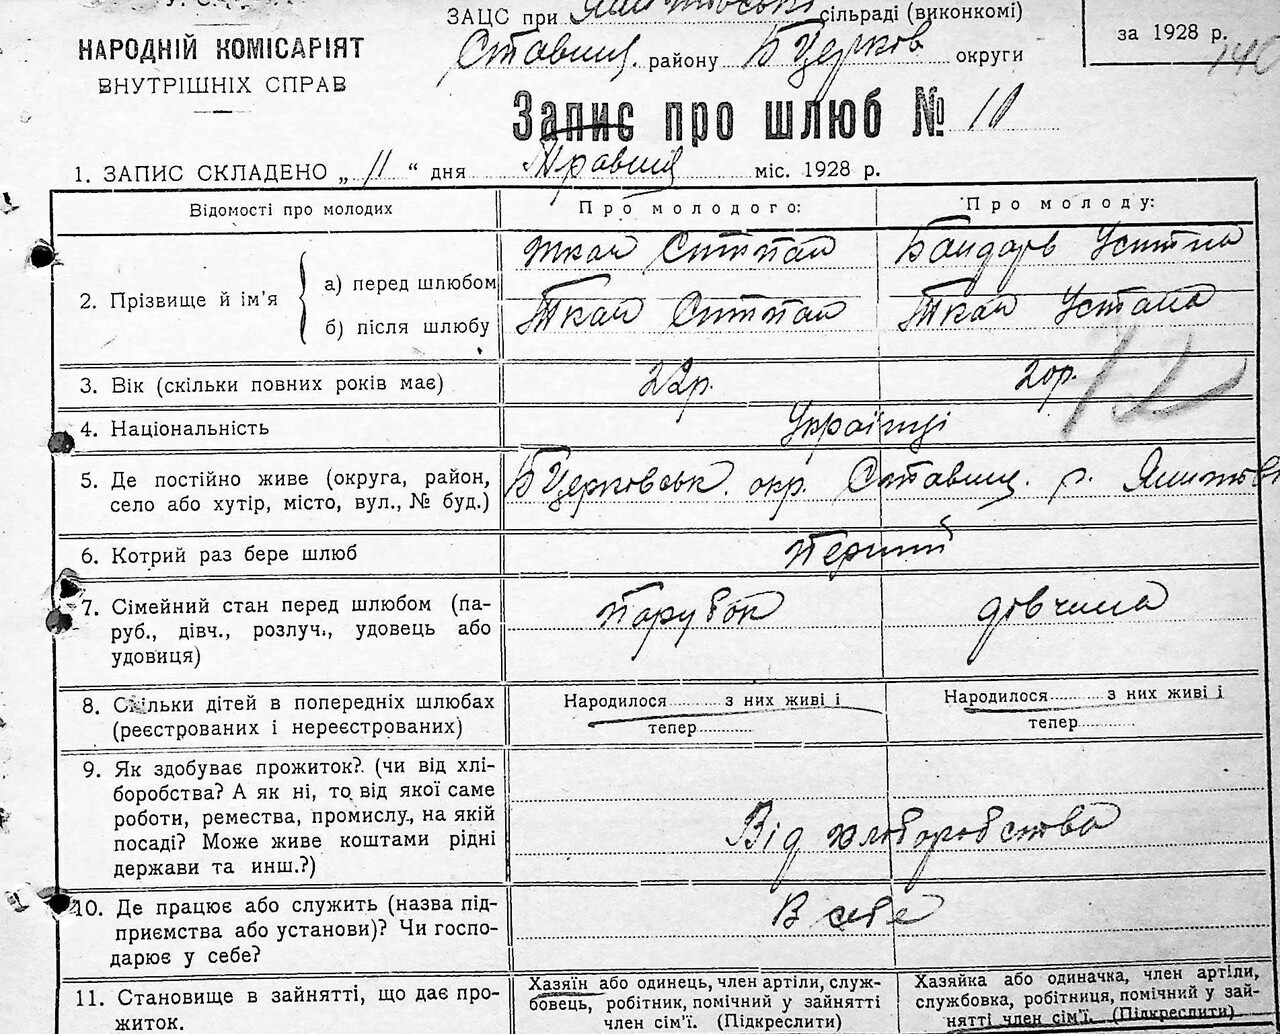 ЗАЦС при сільраді (виконкомі)
НАРОДНІЙ КОМІСАРІЯТ
ВНУТРІШНІХ СПРАВ
Ставищ. району БЦерков округи
за 1928 р.
140
Запис про шлюб № 11
1. ЗАПИС СКЛАДЕНО „ 11 “ дня Травня міс. 1928 р.
Відомості про молодих
Про молодого:
Про молоду:
2. Прізвище й ім'я
а) перед шлюбом
Ткач Степан
Бондарь Устина
б) після шлюбу
Ткач Степан
Ткач Устина
3. Вік (скільки повних років має)
22р.
20р.
12
4. Національність
Українці
5. Де постійно живе (округа, район,
село або хутір, місто, вул., № буд.)
БЦерковськ. окр. Ставищ. р.
6. Котрий раз бере шлюб
Перший
7. Сімейний стан перед шлюбом (па-
руб., дівч., розлуч., удовець або
удовиця)
парубок
дівчина
8. Скільки дітей в попередніх шлюбах
(реєстрованих і нереєстрованих)
Народилося.........з них живі і
тепер.........
Народилося.........з них живі і
тепер.........
9. Як здобуває прожиток? (чи від хлі-
боробства? А як ні, то від якої саме
роботи, ремества, промислу, на якій
посаді? Може живе коштами рідні
держави та инш.?)
Від хлиборобства
10. Де працює або служить (назва під-
приємства або установи)? Чи госпо-
дарює у себе?
В себе
11. Становище в зайнятті, що дає про-
житок.
Хазяїн або одинець, член артіли, служ-
бовець, робітник, помічний у зайнятті
член сім'ї. (Підкреслити)
Хазяйка або одиначка, член артіли,
службовка, робітниця, помічний у зай-
нятті член сім'ї. (Підкреслити)